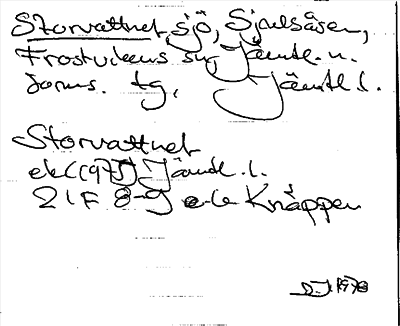 Storvattnet sjö, Sjulsåsen,
Frostvikens sn, Jämtl. n.
doms. tg, Jämtl. l.
Storvattnet
ek (1975) Jämtl. l.
21F 8-9 Knäppen
D.J. 1978